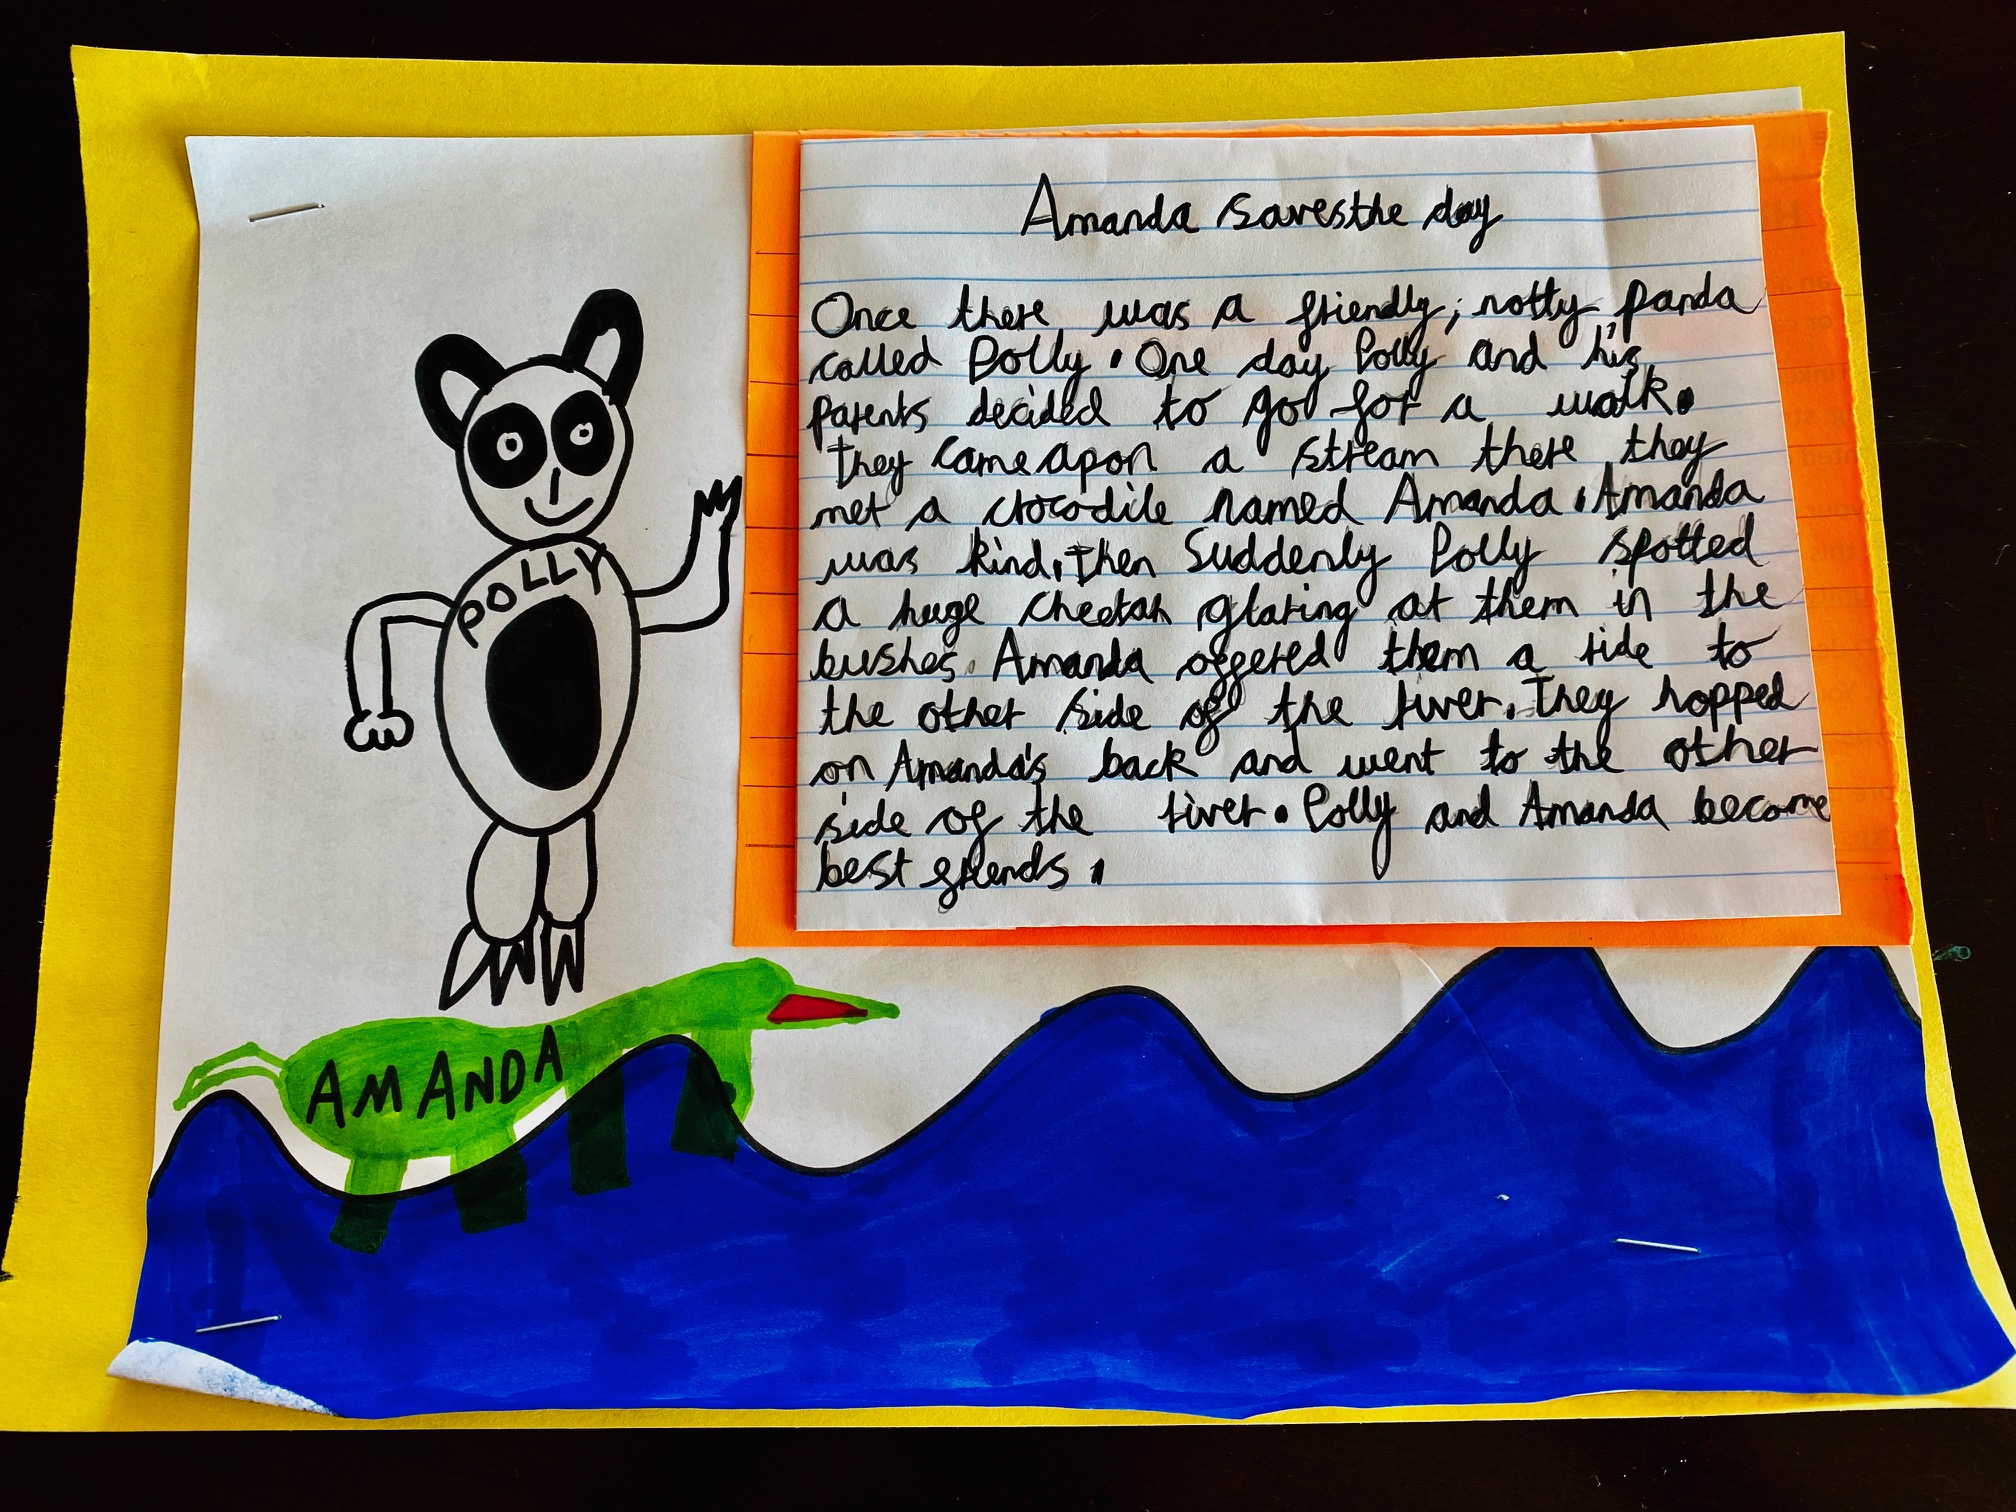 Amanda saves the day
Once there was a friendly, notty panda
called Polly. One day Polly and his
parents decided to go for a walk.
They came apon a stream there they
met a crocodile named Amanda. Amanda
was kind, Then Suddenly Polly spotted
a huge cheetah glaring at them in the
bushes. Amanda offered them a ride to
the other side of the river. They hopped
on Amanda's back and went to the other
side of the river. Polly and Amanda become
best friends.
POLLY
AMANDA